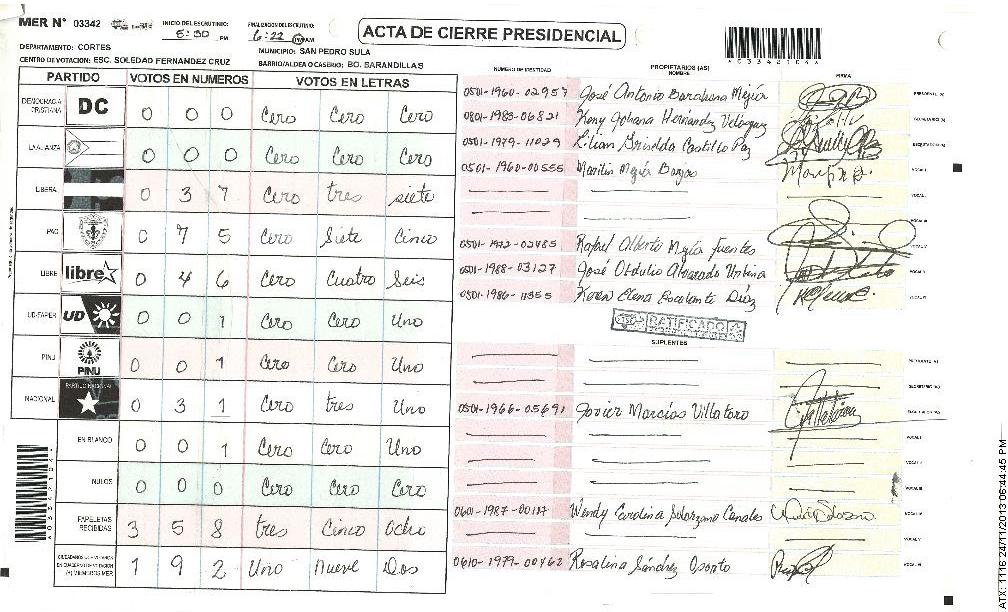 MER N° 03342
INICIO DEL ESCRUTINIO: 5:30 PM
FINALIZACION DEL ESCRUTINIO: 6:22 PM AM
ACTA DE CIERRE PRESIDENCIAL
DEPARTAMENTO: CORTES
MUNICIPIO: SAN PEDRO SULA
CENTRO DE VOTACION: ESC. SOLEDAD FERNANDEZ CRUZ
BARRIO/ALDEA O CASERIO: BO. BARANDILLAS
PARTIDO VOTOS EN NUMEROS VOTOS EN LETRAS
DEMOCRACIA CRISTIANA DC 0 0 0 Cero Cero Cero
LA ALIANZA 0 0 0 Cero Cero Cero
LIBERAL 0 3 7 Cero tres siete
PAC 0 7 5 Cero Siete Cinco
LIBRE libre 0 4 6 Cero Cuatro Seis
UD-FAPER UD 0 0 1 Cero Cero Uno
PINU PINU 0 0 1 Cero Cero Uno
NACIONAL PARTIDO NACIONAL 0 3 1 Cero tres Uno
EN BLANCO 0 0 1 Cero Cero Uno
NULOS 0 0 0 Cero Cero Cero
PAPELETAS RECIBIDAS 3 5 8 tres Cinco Ocho
1 9 2 Uno nueve Dos
NUMERO DE IDENTIDAD PROPIETARIOS (AS) NOMBRE FIRMA
A03342104A
0501-1960-02957 José Antonio Barahona Mejía PRESIDENTE (A)
0801-1983-06821 Keny Johana Hernandez Velasquez SECRETARIO (A)
0501-1979-11029 Lilian Griselda Castillo Paz ESCRUTADOR (A)
0501-1960-00555 Marilin Mejía Barjas VOCAL I
0501-1972-02485 Rafael Alberto Mejía Fuentes
0501-1988-03127 José Obdulio Alvarado Urbina
0501-1986-11355 Karen Elena Escalante Díaz
RATIFICADO
SUPLENTES
0501-1966-05691 Javier Marcías Villatoro
0601-1987-00117 Wendy Carolina Solorzano Canales
0610-1979-00462 Rosalina Sánchez Osorto
ATX: 1116 24/11/2013 06:44:45 PM